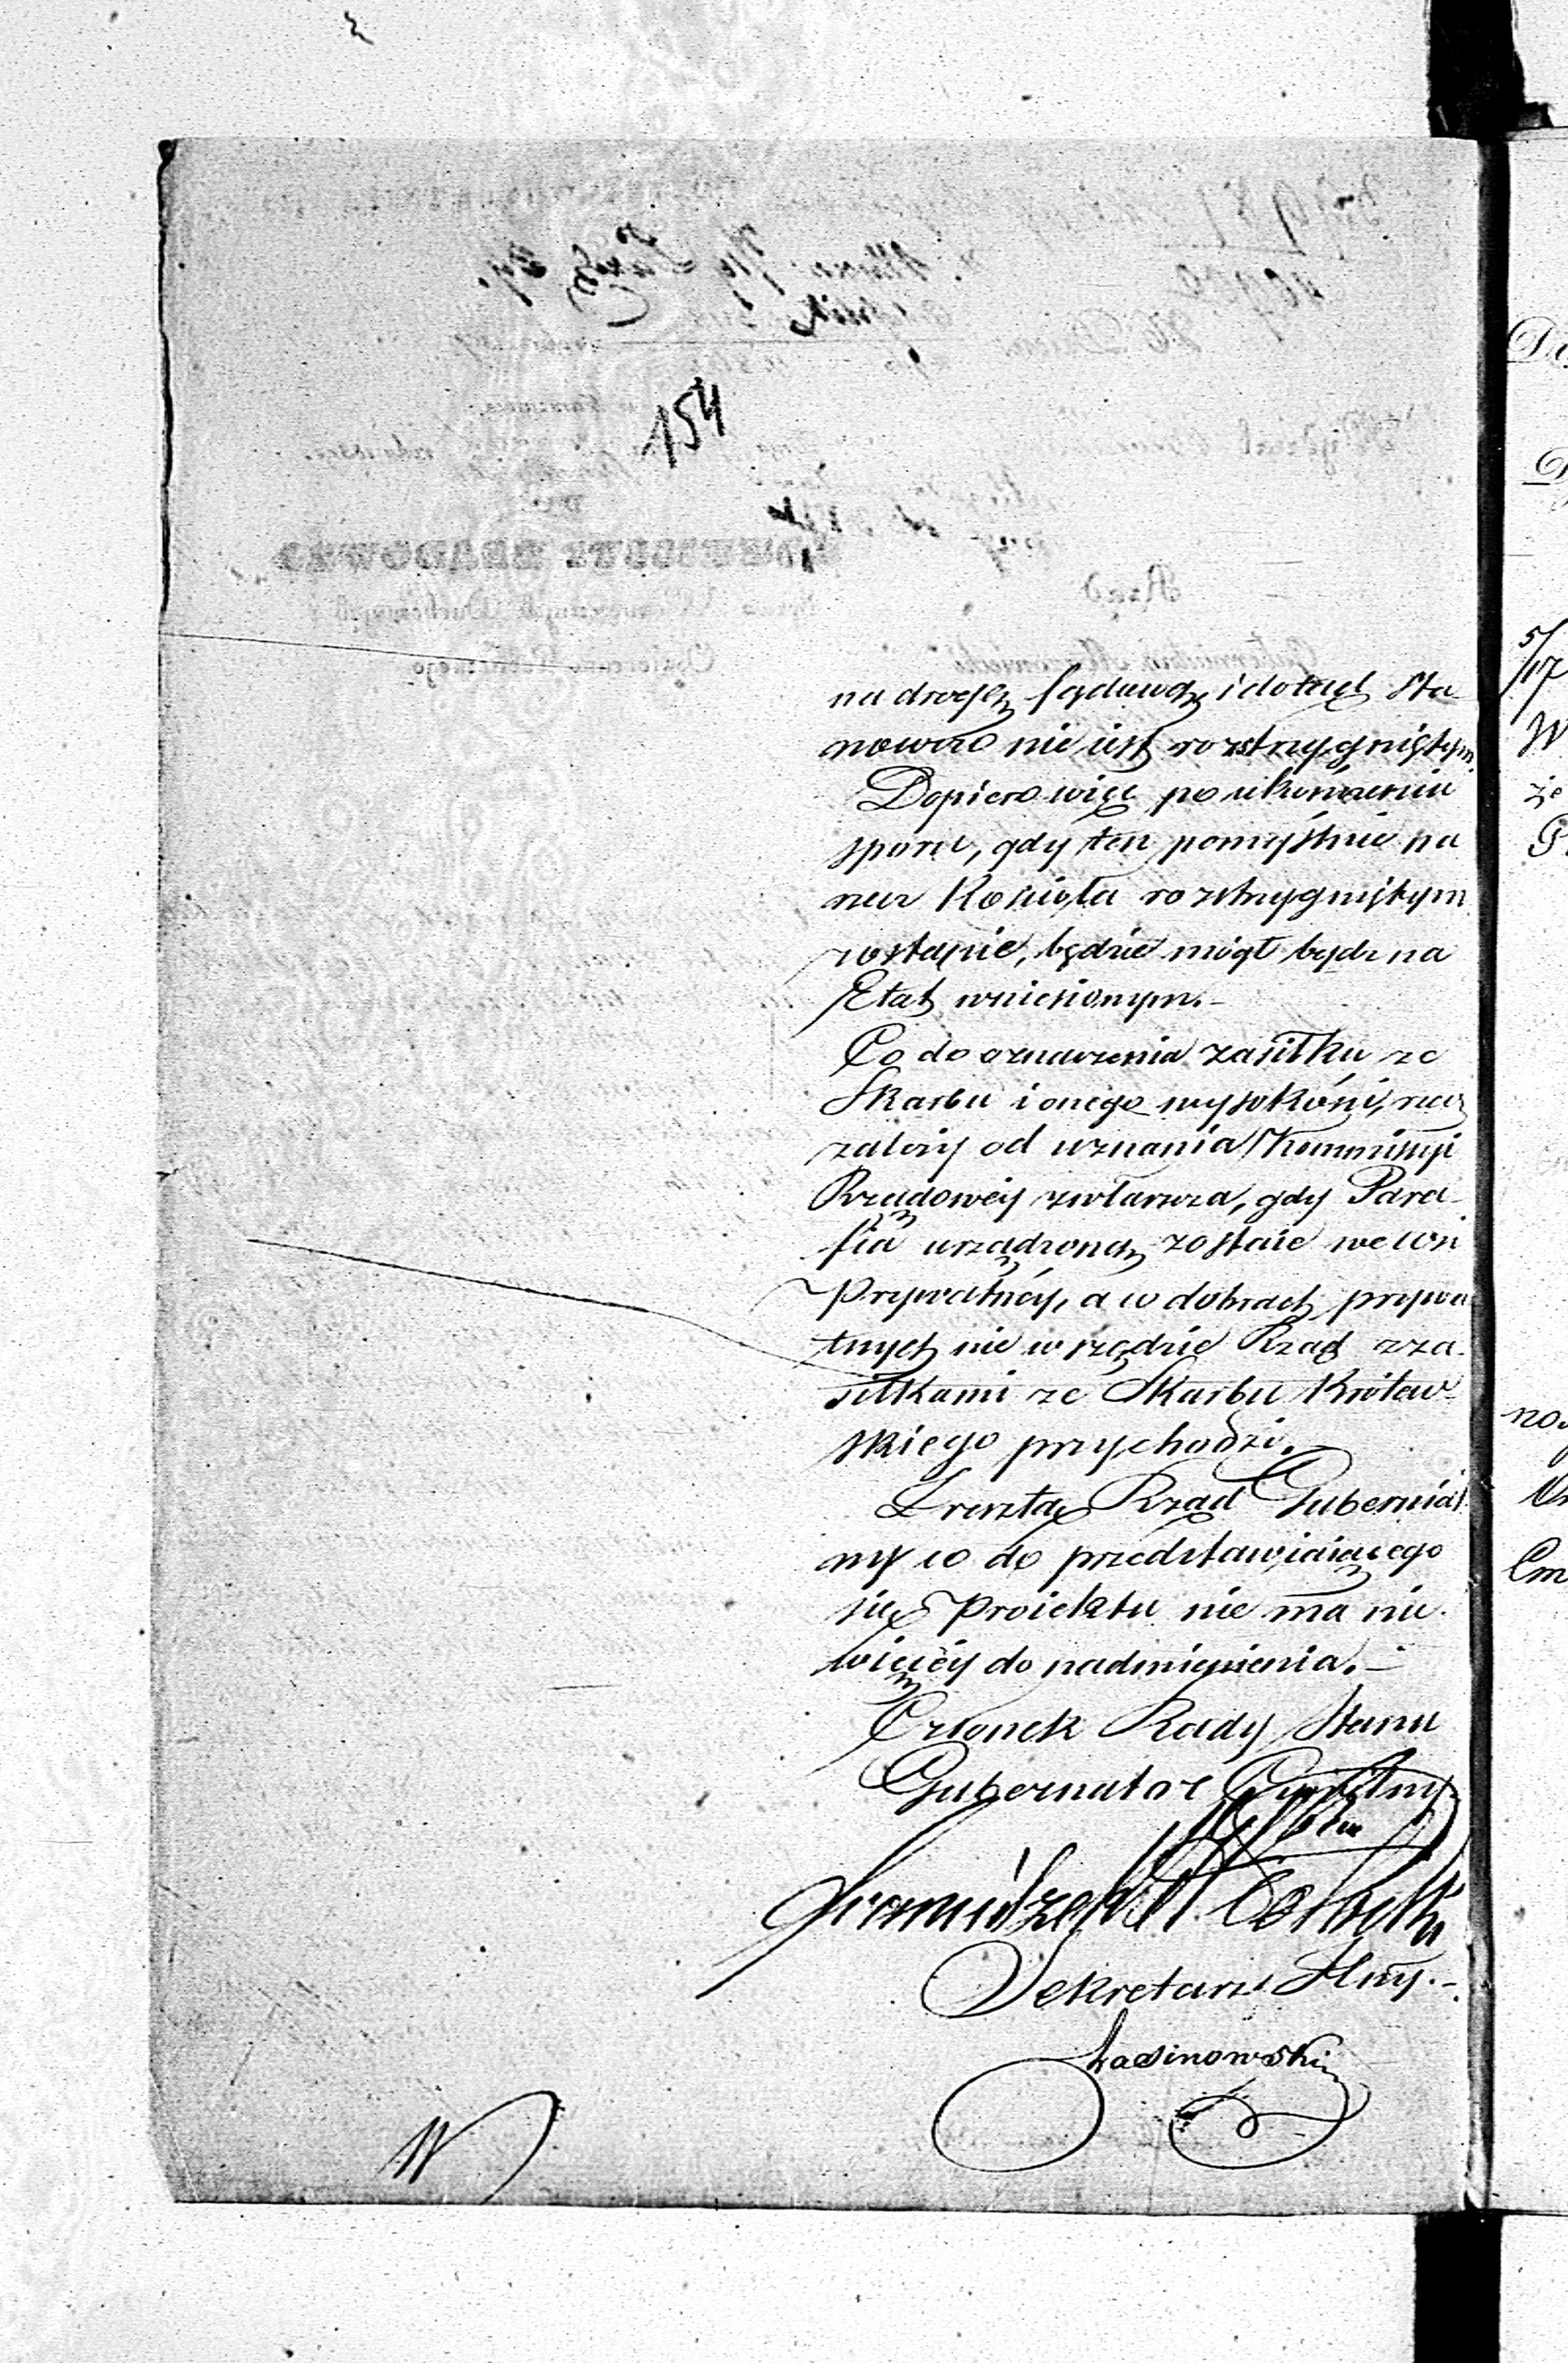 154
na drogę sądową i dotąd sta-
nowczo nie iest rozstrzygniętym.
Dopiero więc po ukończeniu
sporu, gdy ten pomyślnie na
rzecz Kościoła rozstrzygniętym
zostanie, będzie mógł bydź na
Etat wniesionym.-
Co do oznaczenia zasiłku ze
Skarbu i onego wysokości, rzecz
zależy od uznania Kommissyi
Rządowéy zwłaszcza, gdy Para-
fia urządzoną zostaie we wsi
Prywatnéy, a w dobrach prywa-
tnych nie wszędzie Rząd z za-
siłkami ze Skarbu Królew-
skiego przychodzi.
Zresztą Rząd Gubernial-
ny co do przedstawiaiącego
się Proiektu nie ma nic
więcéy do nadmienienia.-
Członek Rady Stanu
Gubernator Cywilny
Sekretarz Jlny.-
Łasinowski